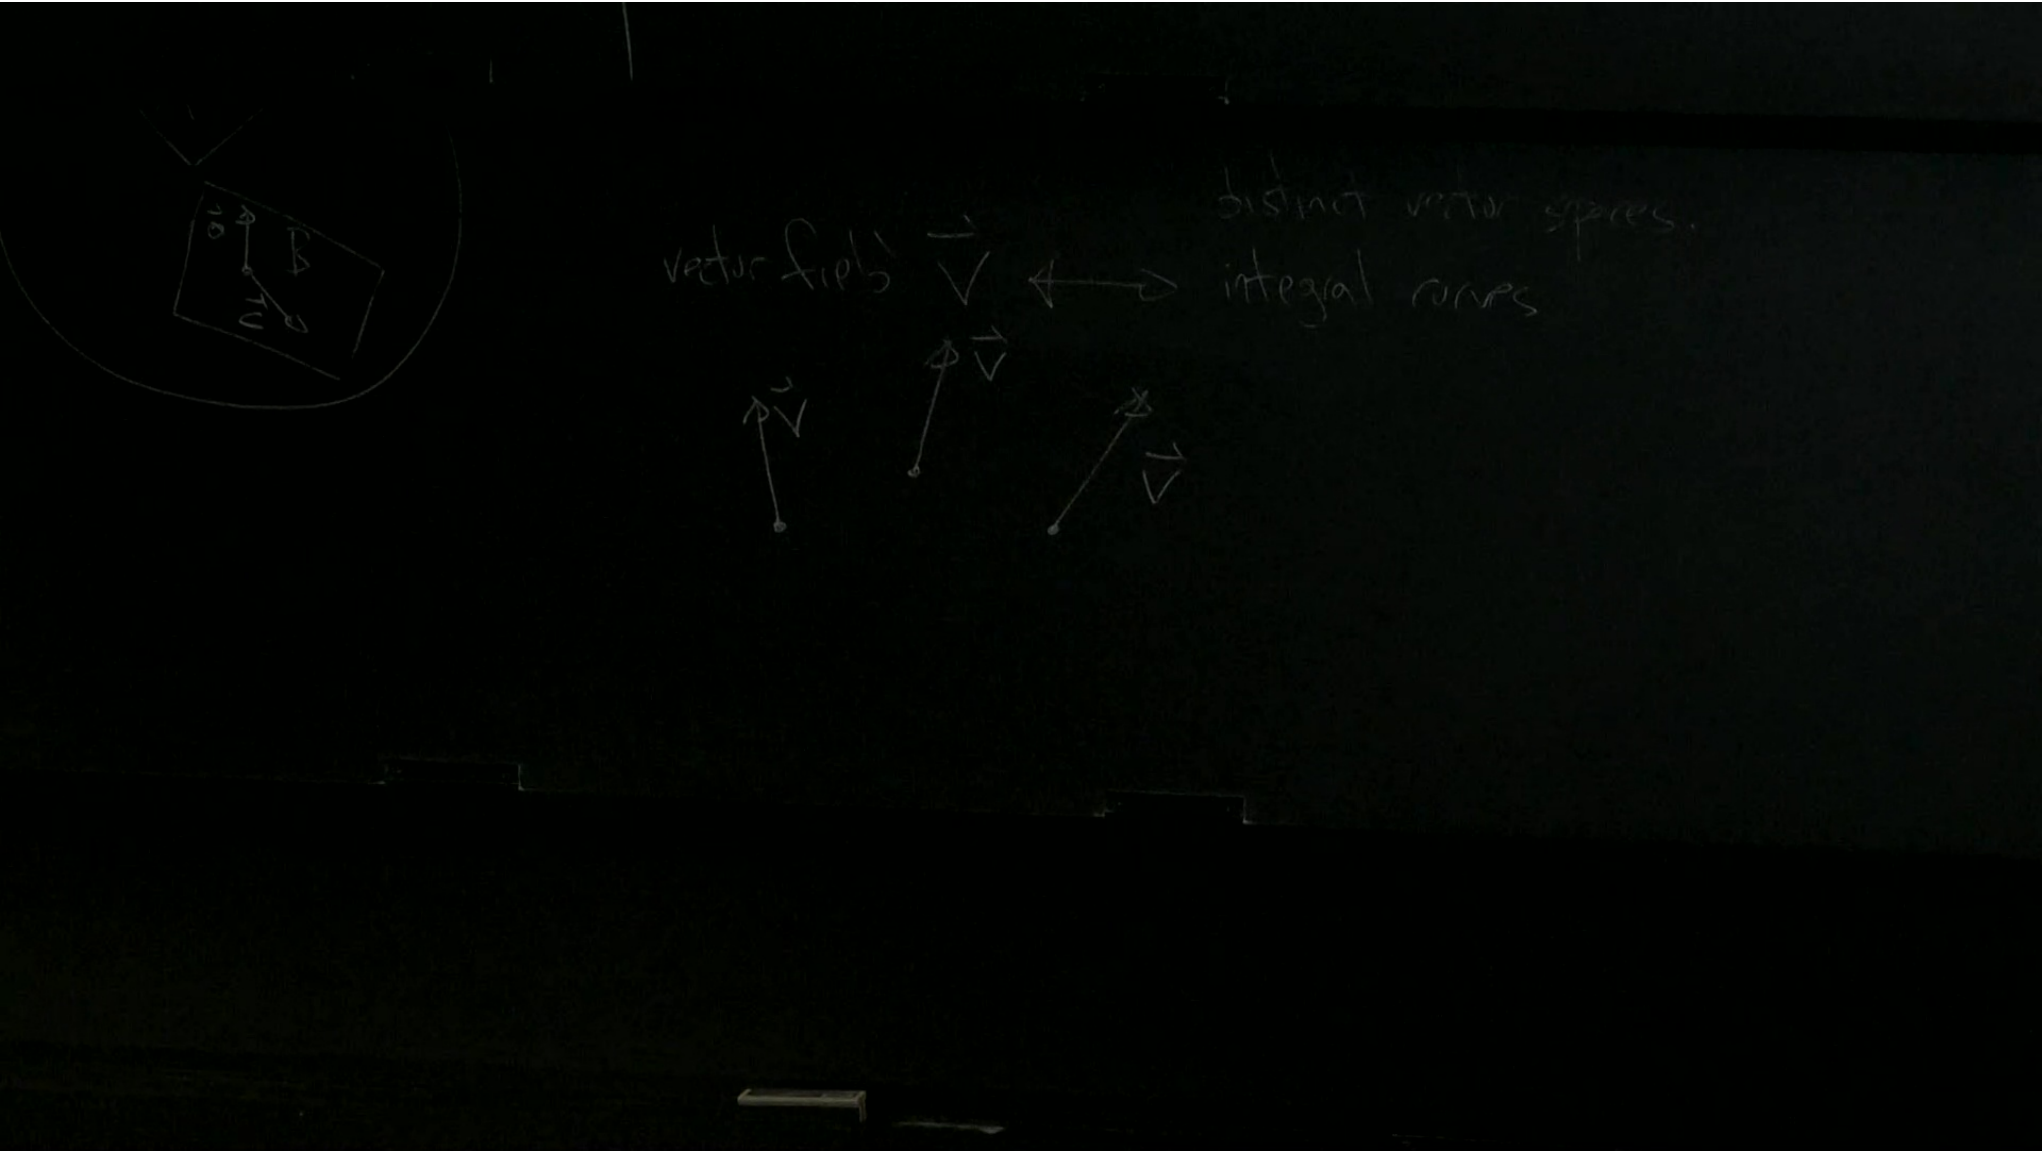 distinct vector spaces.
vector field V⃗ ↔ integral curves
B
C⃗
V⃗
V⃗
V⃗